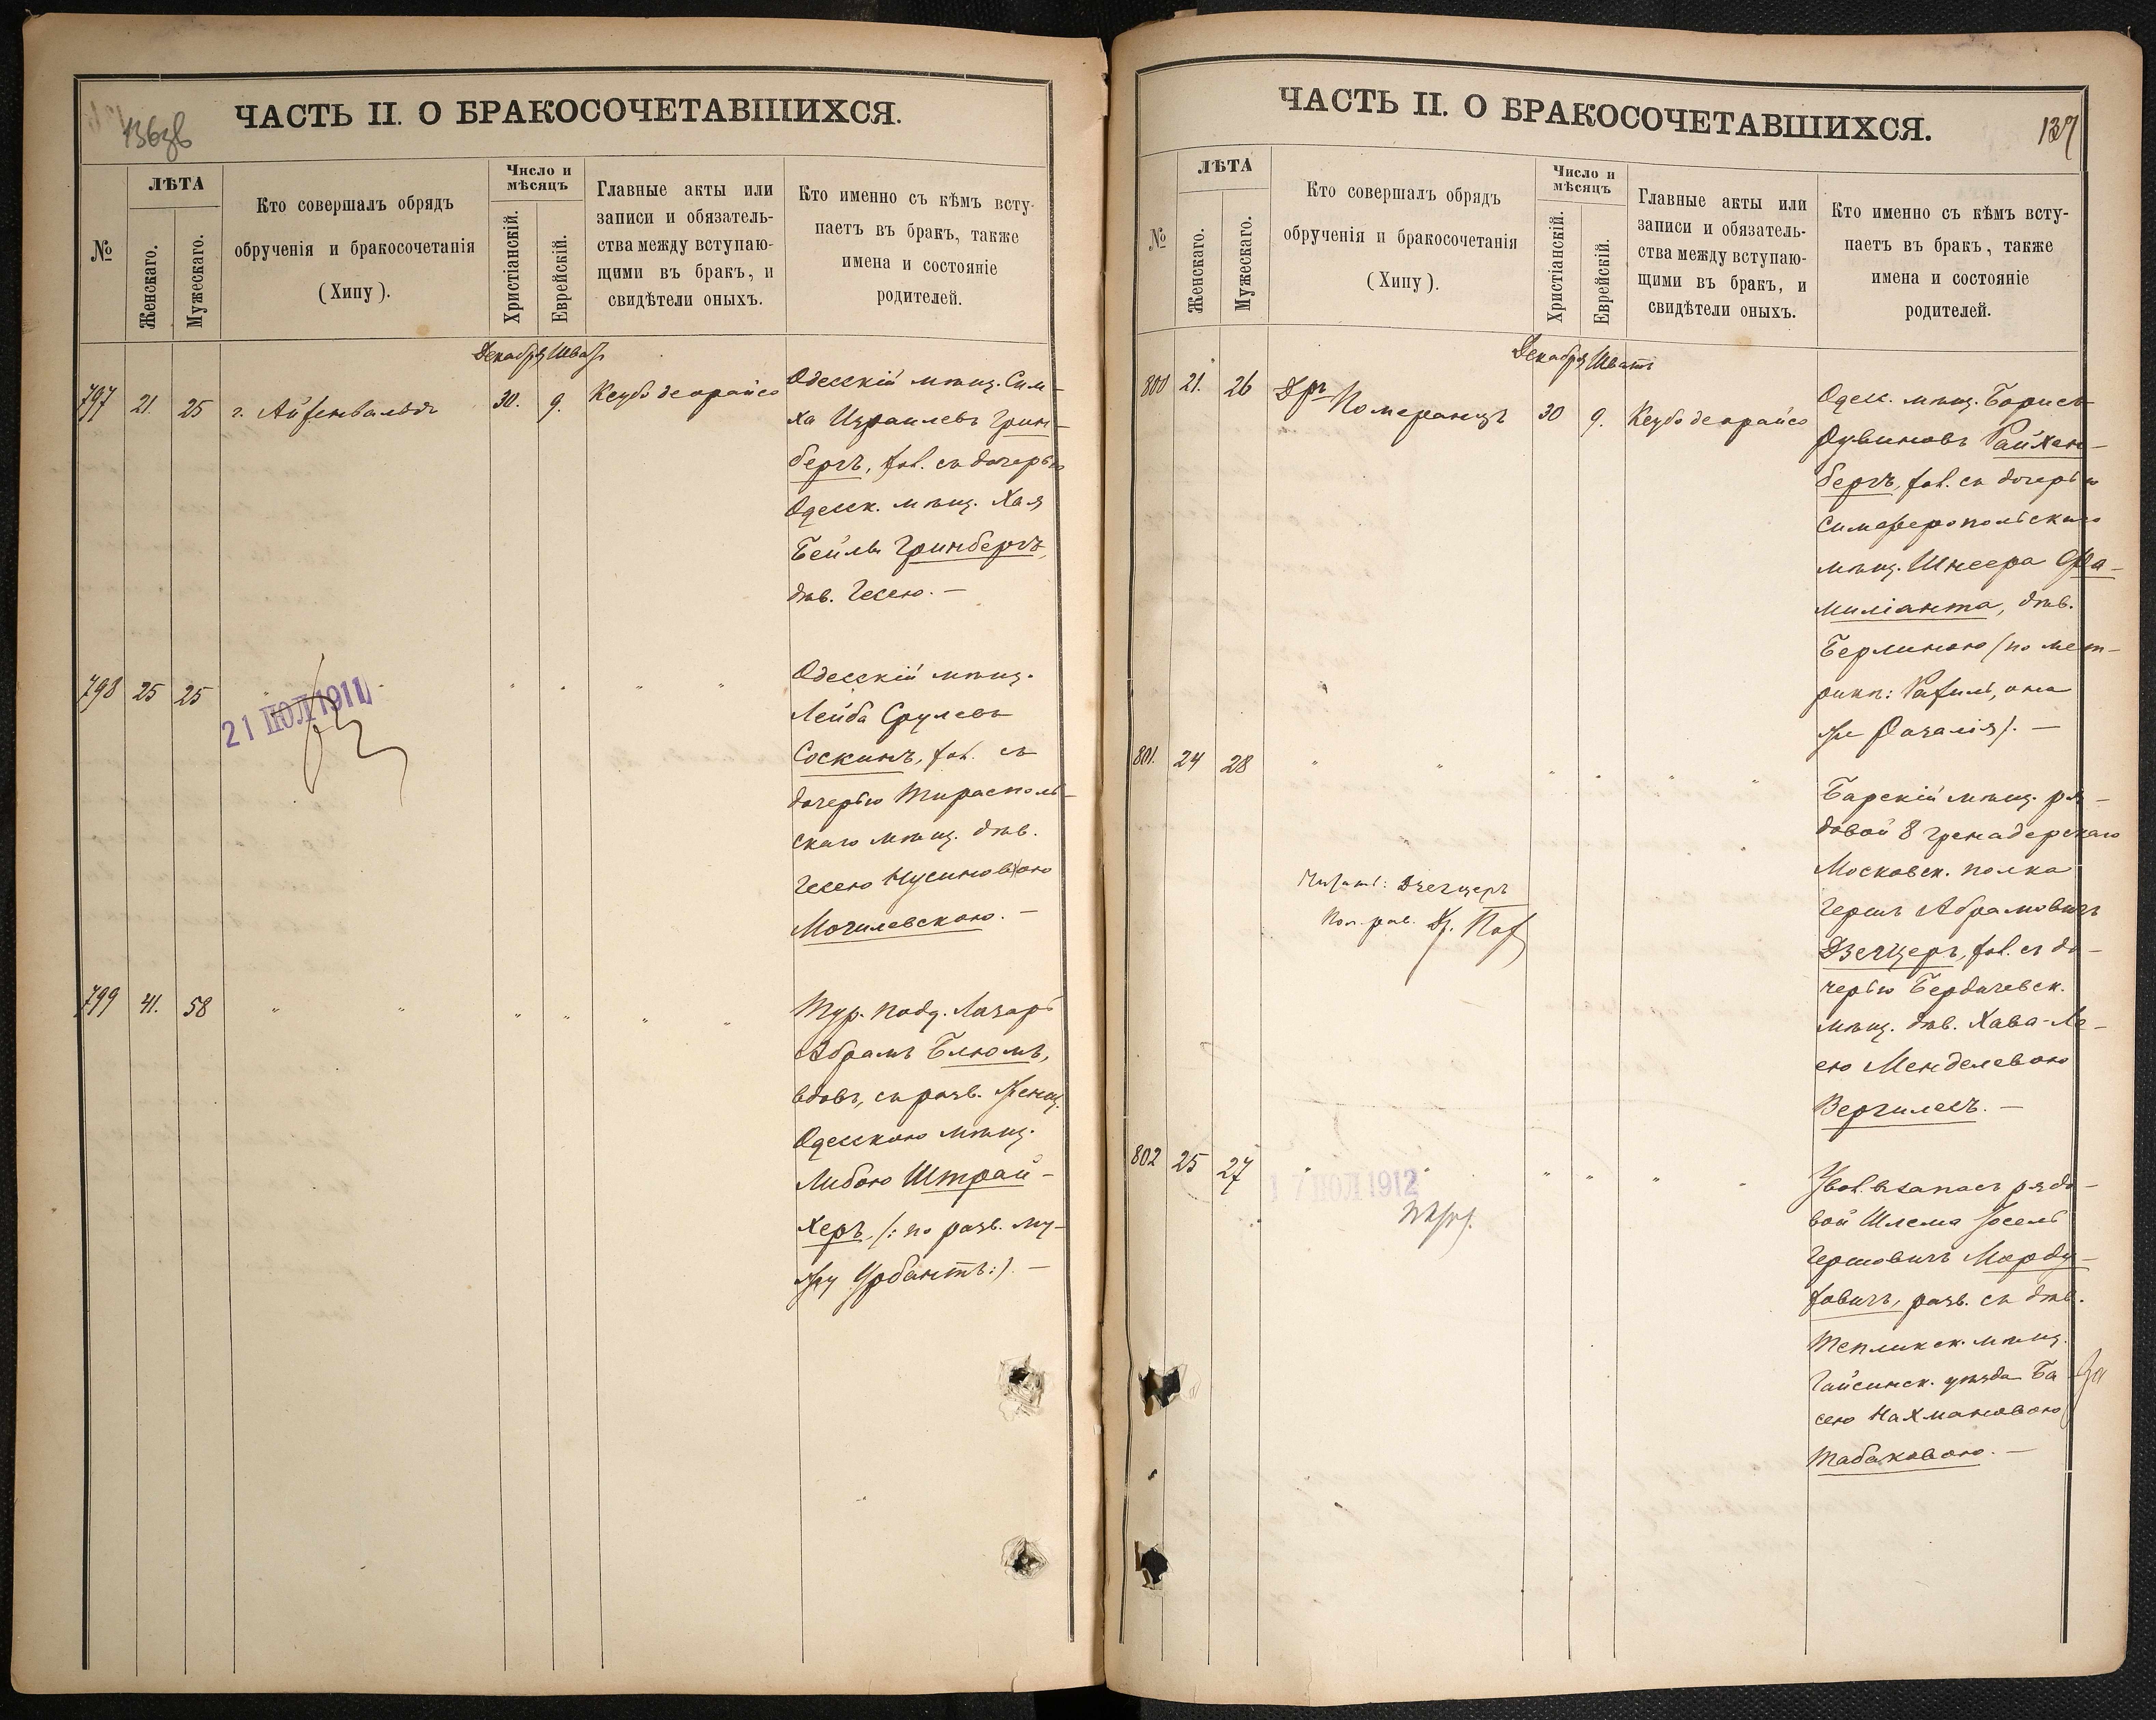 136 об
ЧАСТЬ II. О БРАКОСОЧЕТАВШИХСЯ.
№
ЛѢТА
Женскаго.
Мужескаго.
Кто совершалъ обрядъ
обрученія и бракосочетанія
(Хипу).
Число и
мѣсяцъ
Христіанскій.
Еврейскій.
Главные акты или
записи и обязатель-
ства между вступаю-
щими въ бракъ, и
свидѣтели оныхъ.
Кто именно съ кѣмъ всту-
паетъ въ бракъ, также
имена и состояніе
родителей.
Декабря Шватъ
797 21. 25 г. Айзенвальдъ 30. 9. Кеубо деорайсо
Одесскій мѣщ. Сим-
ха Израилевъ Грин-
бергъ, хол. съ дочерью
Одесск. мѣщ. Хая
Бейлы Гринбергъ,
дѣв. Гесею. —
798 25 25 " " " " "
21 ІЮЛ 1911
Одесскій мѣщ.
Лейба Срулевъ
Соскинъ, хол. съ
дочерью Тирасполь-
скаго мѣщ. дѣв.
Гесею Нусиновою
Могилевскою. —
799 41. 58 " " " " " "
Тур. подд. Лазарь
Абрамъ Блюмъ,
вдовъ, съ разв. женщ.
Одесскою мѣщ.
Либою Штрай-
херъ, /: по разв. му-
жу Урбантъ:/. —
ЧАСТЬ II. О БРАКОСОЧЕТАВШИХСЯ.
137
№
ЛѢТА
Женскаго.
Мужескаго.
Кто совершалъ обрядъ
обрученія и бракосочетанія
(Хипу).
Число и
мѣсяцъ
Христіанскій.
Еврейскій.
Главные акты или
записи и обязатель-
ства между вступаю-
щими въ бракъ, и
свидѣтели оныхъ.
Кто именно съ кѣмъ всту-
паетъ въ бракъ, также
имена и состояніе
родителей.
Декабря Шватъ
800 21. 26 Дръ Померанцъ 30 9. Кеубо деорайсо
Одесс. мѣщ. Борисъ
Рувиновъ Райхен-
бергъ, хол. съ дочерью
Симферопольскаго
мѣщ. Шнеера Фа-
миліанта, дѣв.
Берлиною /по мет-
рикѣ: Рахиль, она
же Розалія/. —
801. 24 28 " " " " " "
Барскій мѣщ. ря-
довой 8 гренадерскаго
Московск. полка
Гершъ Абрамовичъ
Дзегцеръ, хол. съ до-
черью Бердичевск.
мѣщ. дѣв. Хава-Ле-
ею Менделевою
Вергилесъ. —
Читать: Дзегцеръ
802 25 27 " " " " " "
17 ІЮЛ 1912
Увол. въ запасъ рядо-
вой Шлема Іосель
Гершовичъ Морду-
ховичъ, разв. съ дѣв.
Тепликск. мѣщ.
Гайсинск. уѣзда Ба
сею Нахмановою
Табаковою. —